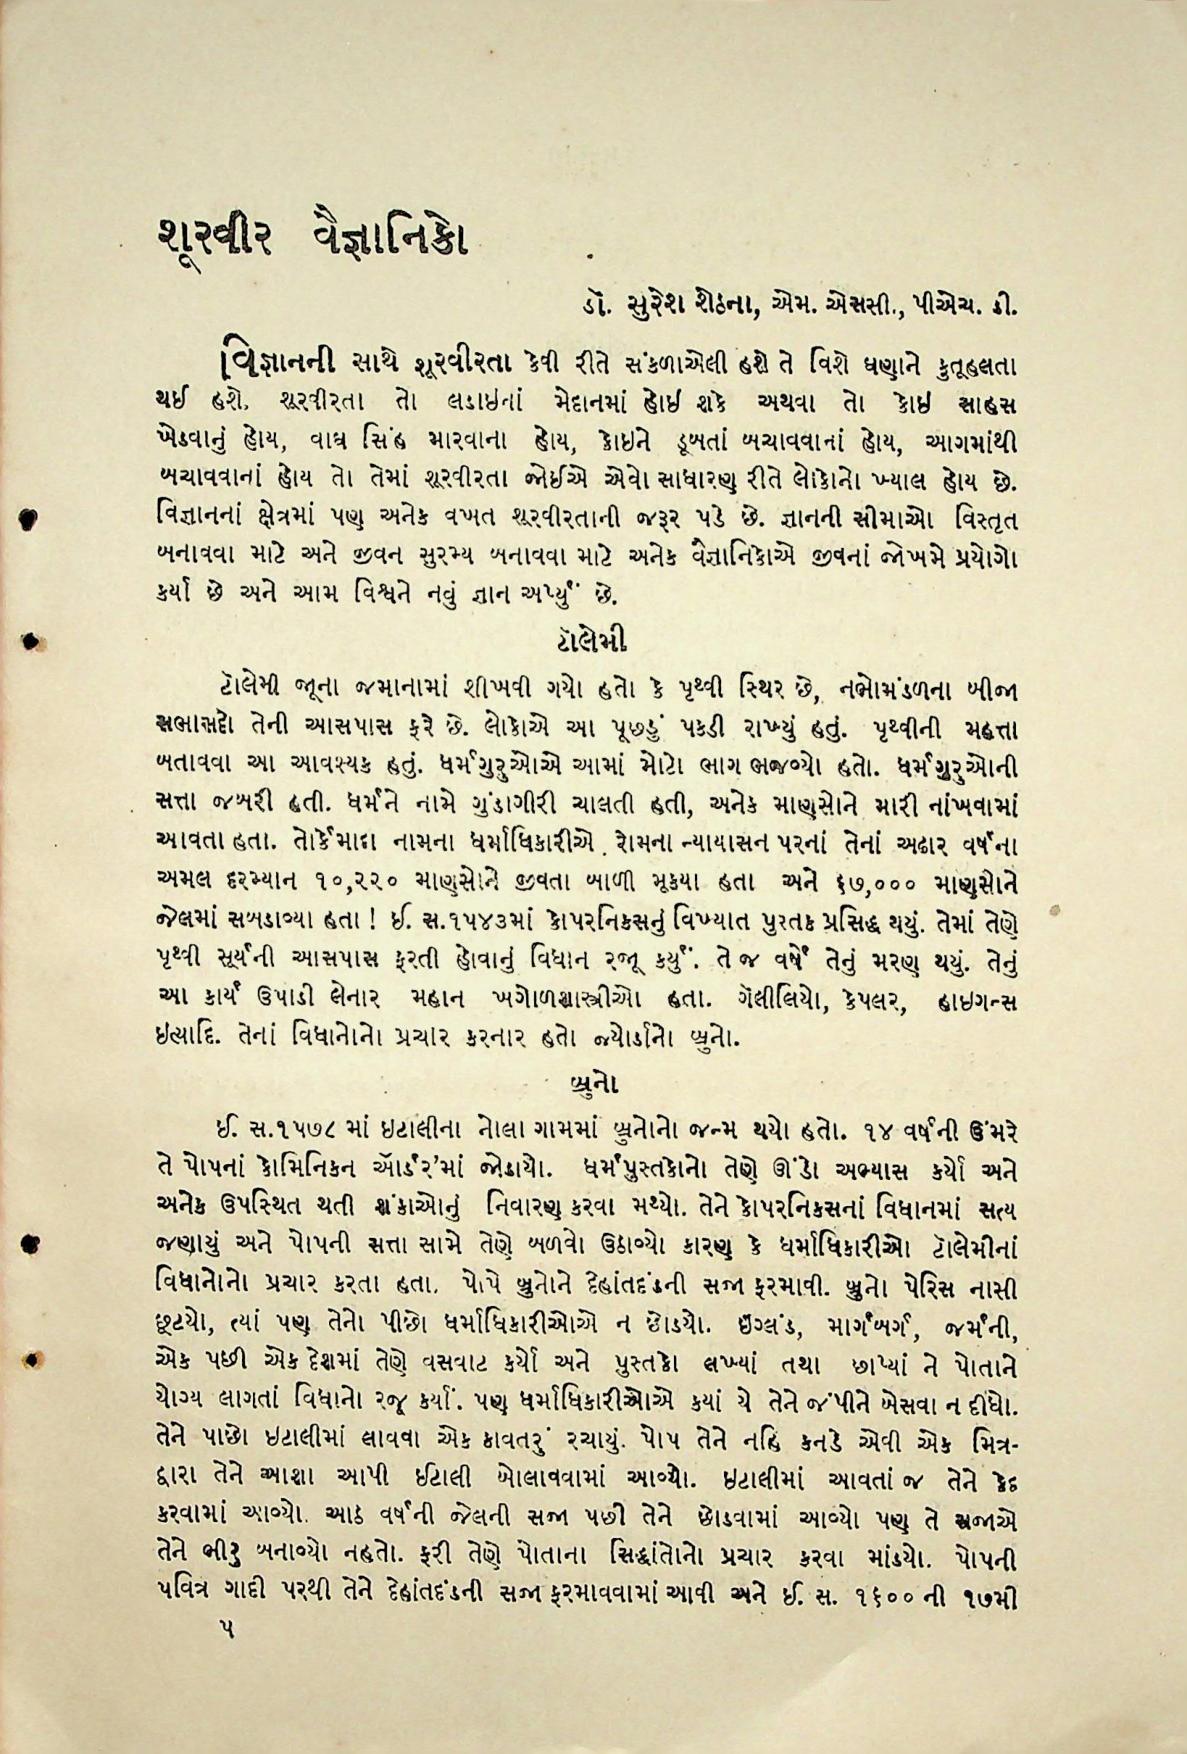 શૂરવીર વૈજ્ઞાનિકો
ડૉ. સુરેશ શેઠના, એમ. એસસી., પીએચ. ડી.
વિજ્ઞાનની સાથે શૂરવીરતા કેવી રીતે સંકળાએલી હશે તે વિશે ઘણાને કુતૂહલતા
થઈ હશે. શૂરવીરતા તો લડાઇનાં મેદાનમાં હોઇ શકે અથવા તો કોઇ સાહસ
ખેડવાનું હોય, વાઘ સિંહ મારવાના હોય, કોઇને ડૂબતાં બચાવવાનાં હોય, આગમાંથી
બચાવવાનાં હોય તો તેમાં શૂરવીરતા જોઈએ એવો સાધારણ રીતે લોકોનો ખ્યાલ હોય છે.
વિજ્ઞાનનાં ક્ષેત્રમાં પણ અનેક વખત શૂરવીરતાની જરૂર પડે છે. જ્ઞાનની સીમાઓ વિસ્તૃત
બનાવવા માટે અને જીવન સુરમ્ય બનાવવા માટે અનેક વૈજ્ઞાનિકોએ જીવનાં જોખમે પ્રયોગો
કર્યા છે અને આમ વિશ્વને નવું જ્ઞાન અર્પ્યું છે.
ટૉલેમી
ટૉલેમી જૂના જમાનામાં શીખવી ગયો હતો કે પૃથ્વી સ્થિર છે, નભોમંડળના બીજા
સભાસદો તેની આસપાસ ફરે છે. લોકોએ આ પૂછડું પકડી રાખ્યું હતું. પૃથ્વીની મહત્તા
બતાવવા આ આવશ્યક હતું. ધર્મગુરુઓએ આમાં મોટો ભાગ ભજવ્યો હતો. ધર્મગુરુઓની
સત્તા જબરી હતી. ધર્મને નામે ગુંડાગીરી ચાલતી હતી, અનેક માણસોને મારી નાંખવામાં
આવતા હતા. તોર્કેમાદા નામના ધર્માધિકારીએ રોમના ન્યાયાસન પરનાં તેનાં અઢાર વર્ષના
અમલ દરમ્યાન ૧૦,૨૨૦ માણસોને જીવતા બાળી મૂકયા હતા અને ૬૭,૦૦૦ માણસોને
જેલમાં સબડાવ્યા હતા ! ઈ. સ.૧૫૪૩માં કોપરનિકસનું વિખ્યાત પુસ્તક પ્રસિદ્ધ થયું. તેમાં તેણે
પૃથ્વી સૂર્યની આસપાસ ફરતી હોવાનું વિધાન રજૂ કર્યું. તે જ વર્ષે તેનું મરણ થયું. તેનું
આ કાર્ય ઉપાડી લેનાર મહાન ખગોળશાસ્ત્રીઓ હતા. ગૅલીલિયો, કેપલર, હાઇગન્સ
ઇત્યાદિ. તેનાં વિધાનોનો પ્રચાર કરનાર હતો જ્યોર્ડાનો બ્રુનો.
બ્રુનો
ઈ. સ.૧૫૭૮ માં ઇટાલીના નોલા ગામમાં બ્રુનોનો જન્મ થયો હતો. ૧૪ વર્ષની ઉંમરે
તે પોપનાં ડોમિનિકન ઑર્ડર'માં જોડાયો. ધર્મપુસ્તકોનો તેણે ઊંડો અભ્યાસ કર્યો અને
અનેક ઉપસ્થિત થતી શંકાઓનું નિવારણ કરવા મથ્યો. તેને કોપરનિકસનાં વિધાનમાં સત્ય
જણાયું અને પોપની સત્તા સામે તેણે બળવો ઉઠાવ્યો કારણ કે ધર્માધિકારીઓ ટૉલેમીનાં
વિધાનોનો પ્રચાર કરતા હતા. પોપે બ્રુનોને દેહાંતદંડની સજા ફરમાવી. બ્રુનો પેરિસ નાસી
છૂટયો, ત્યાં પણ તેનો પીછો ધર્માધિકારીઓએ ન છોડયો. ઇંગ્લંડ, માર્ગબર્ગ, જર્મની,
એક પછી એક દેશમાં તેણે વસવાટ કર્યો અને પુસ્તકો લખ્યાં તથા છાપ્યાં ને પોતાને
યોગ્ય લાગતાં વિધાનો રજૂ કર્યાં. પણ ધર્માધિકારીઓએ કયાં યે તેને જંપીને બેસવા ન દીધો.
તેને પાછો ઇટાલીમાં લાવવા એક કાવતરું રચાયું. પોપ તેને નહિ કનડે એવી એક મિત્ર-
દ્વારા તેને આશા આપી ઈટાલી બોલાવવામાં આવ્યો. ઇટાલીમાં આવતાં જ તેને કેદ
કરવામાં આવ્યો. આઠ વર્ષની જેલની સજા પછી તેને છોડવામાં આવ્યો પણ તે સજાએ
તેને ભીરુ બનાવ્યો નહતો. ફરી તેણે પોતાના સિદ્ધાંતોનો પ્રચાર કરવા માંડયો. પોપની
પવિત્ર ગાદી પરથી તેને દેહાંતદંડની સજા ફરમાવવામાં આવી અને ઈ. સ. ૧૬૦૦ ની ૧૭મી
૫